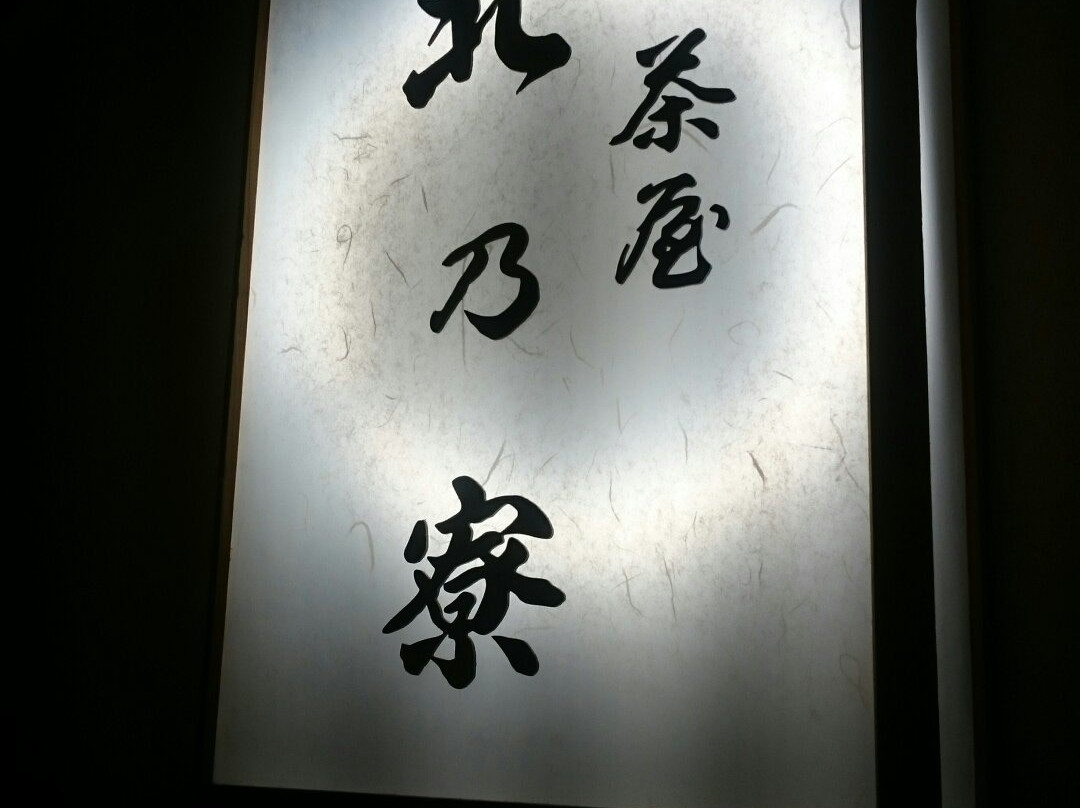 茶屋
北乃寮